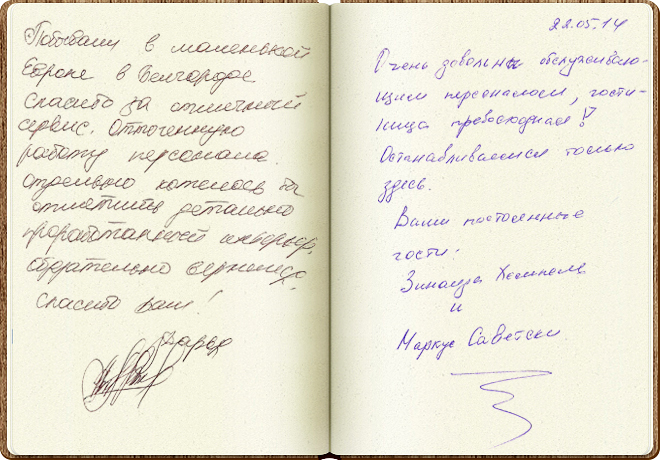 Побывали в маленькой
Европе в Белгороде
Спасибо за отличный
сервис. Отточенную
работу персонала.
отдельно хотелось бы
отметить детально
проработанный интерьер.
обязательно вернемся.
Спасибо Вам!
22.05.14
Очень довольны обслуживаю-
щим персоналом, гости-
ница превосходная!
Останавливаемся только
здесь.
Ваши постоянные
гости:
Зинаида
и
Маркус Саветски